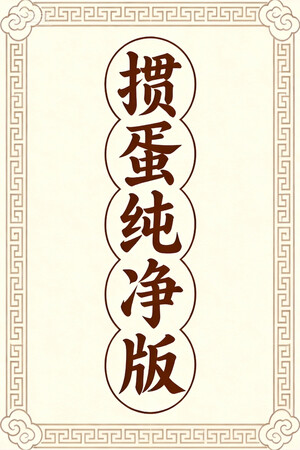 掼蛋纯净版